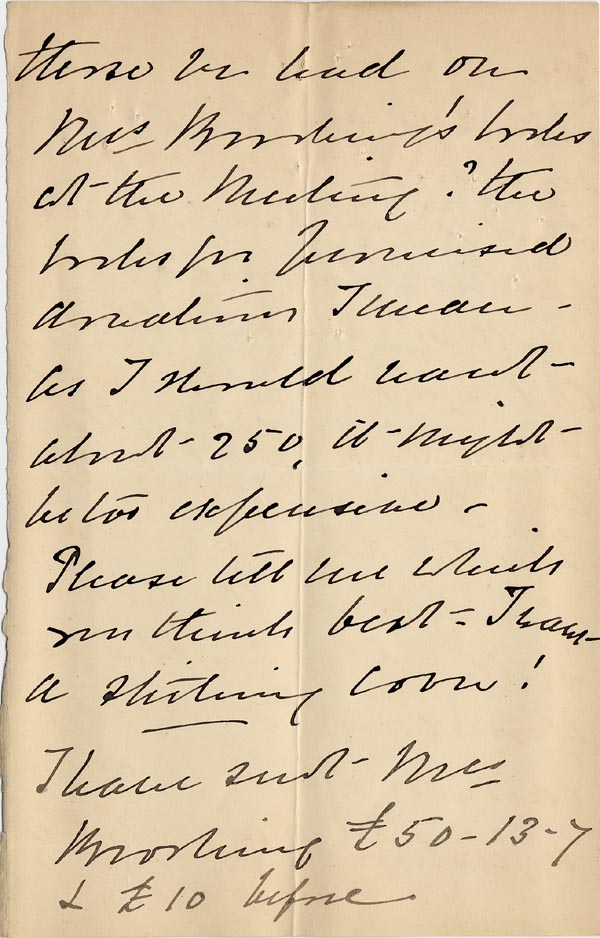 these be on
Mrs Brooking's books
at the Meeting? the
books for promised
donations I mean -
as I should want -
about - 250, it might -
be too expensive -
Please tell me which
you think best - I want
a striking cover!
I have sent Mrs
Brooking £50-13-7
& £10 before